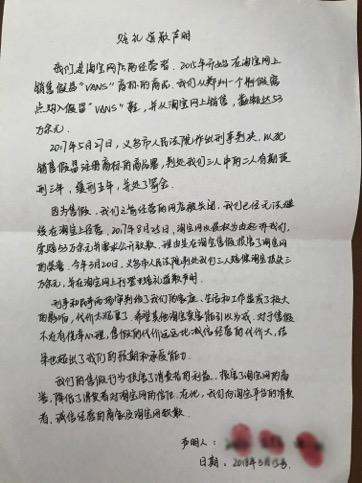 赔礼道歉声明
我们是淘宝网店的经营者。2015年开始在淘宝网上
销售假冒“VANS”商标的商品。我们从郑州一个制假窝
点购入假冒“VANS”鞋，并从淘宝网上销售，数额达53
万余元。
2017年5月27日，义乌市人民法院作出刑事判决，以犯
销售假冒注册商标的商品罪，判处我们三人中的二人有期徒
刑三年，缓刑年，并处了罚金。
因为售假，我们之前经营的网店被关闭，我们已经无法继
续在淘宝上经营。2017年8月25日，淘宝网以侵权为由起诉我们，
索赔53万元并要求公开致歉。理由是在淘宝售假损害了淘宝网
的荣誉。今年3月20日，义乌市人民法院判决我们三人赔偿淘宝损失三
万余元，并在淘宝网上刊登赔礼道歉声明。
刑事和民事两场审判给了我们的家庭、生活和工作造成了极大
的影响，代价太沉重了。希望其他淘宝卖家能引以为戒。对于售假
不存有侥幸心理，售假的代价远远比诚信经营的代价大，结
果也超出了我们的预期和承受能力。
我们的售假行为损害了消费者的利益，损害了淘宝网的商
誉，降低了消费者对淘宝网的信任。在此，我们向淘宝平台的消费
者、诚信经营的商家及淘宝网致歉。
声明人：
日期：2018年5月15号